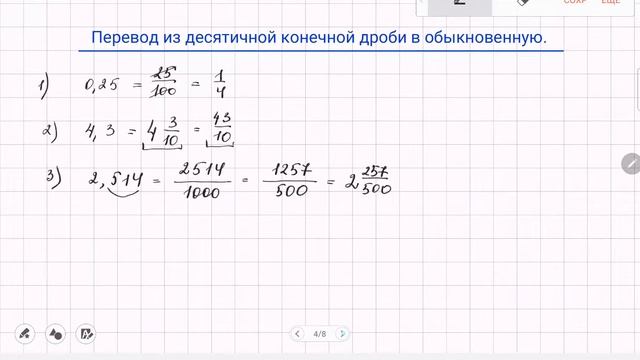 СОХР ЕЩЕ
Перевод из десятичной конечной дроби в обыкновенную.
1) 0,25 = 25/100 = 1/4
2) 4,3 = 4 3/10 = 43/10
3) 2,514 = 2514/1000 = 1257/500 = 2 257/500
4/8